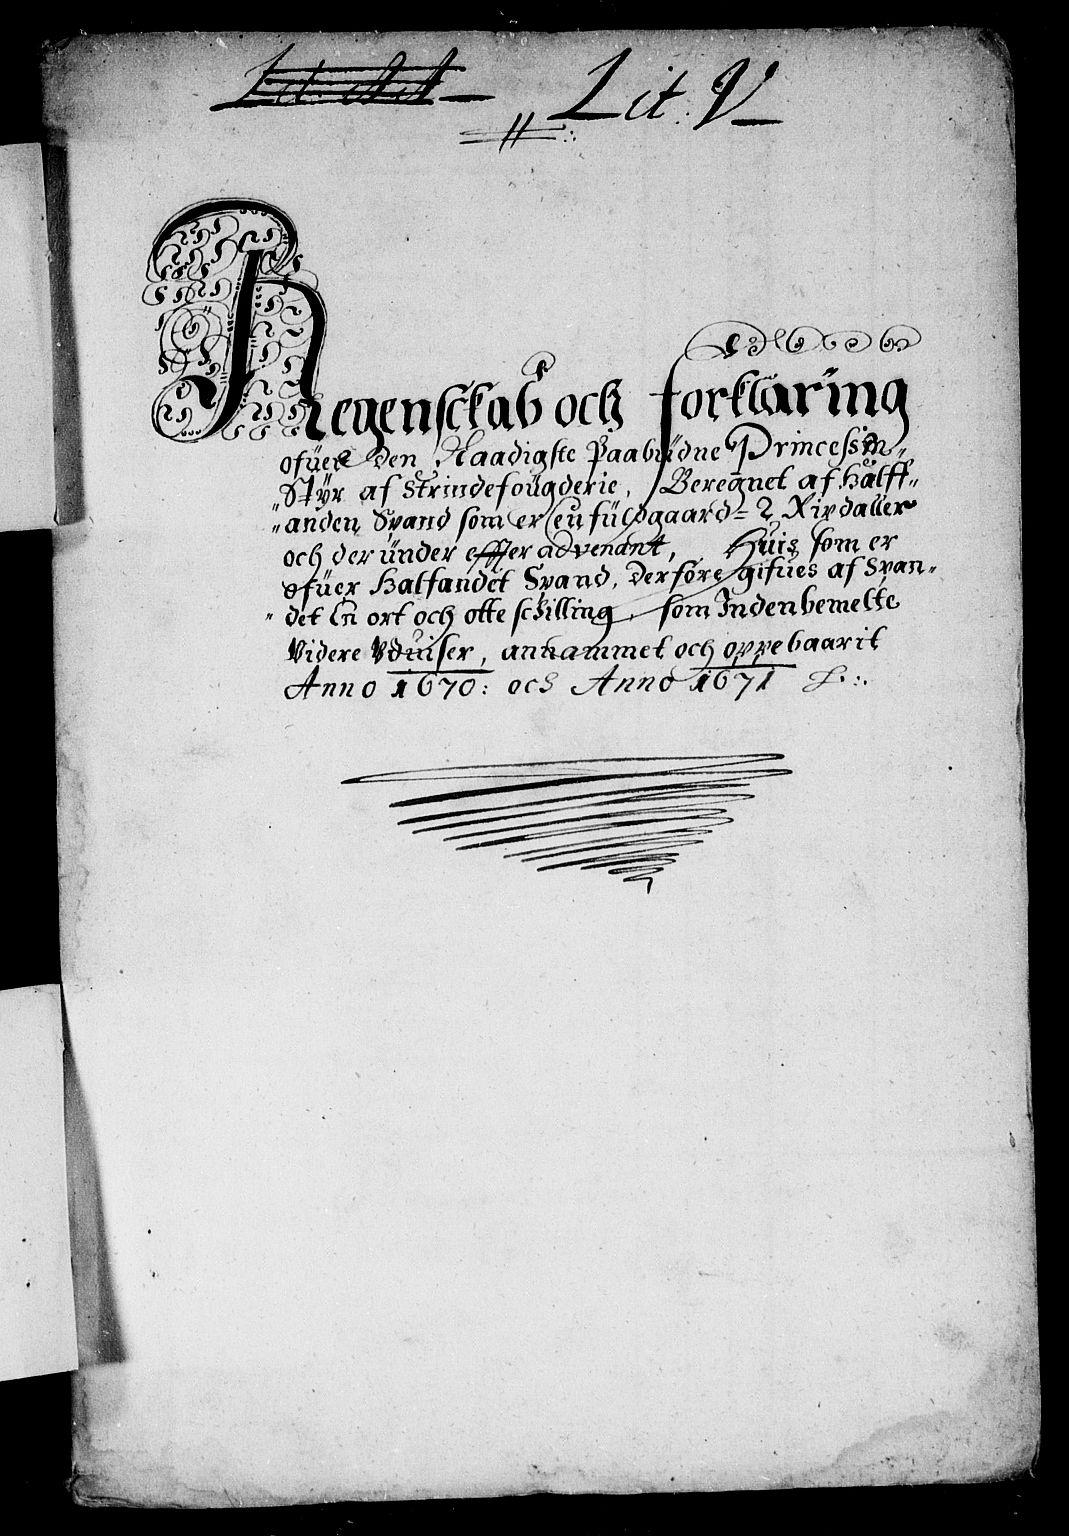 Lit. V
Regenschab och forklaring
ofuer den Naadigste Paabudne Princessin-
Styr af Strindefougderie, Beregnet af Halff-
anden Spand som er en fuldgaard - 2 Rixdaller
och der under effter advenant, Huis som er
ofuer Halfandet Spand, der fore gifues af Span-
det En ort och otte schilling, som Inden bemelte
Videre Vduiser, annammet och oppebaarit
Anno 1670: och Anno 1671